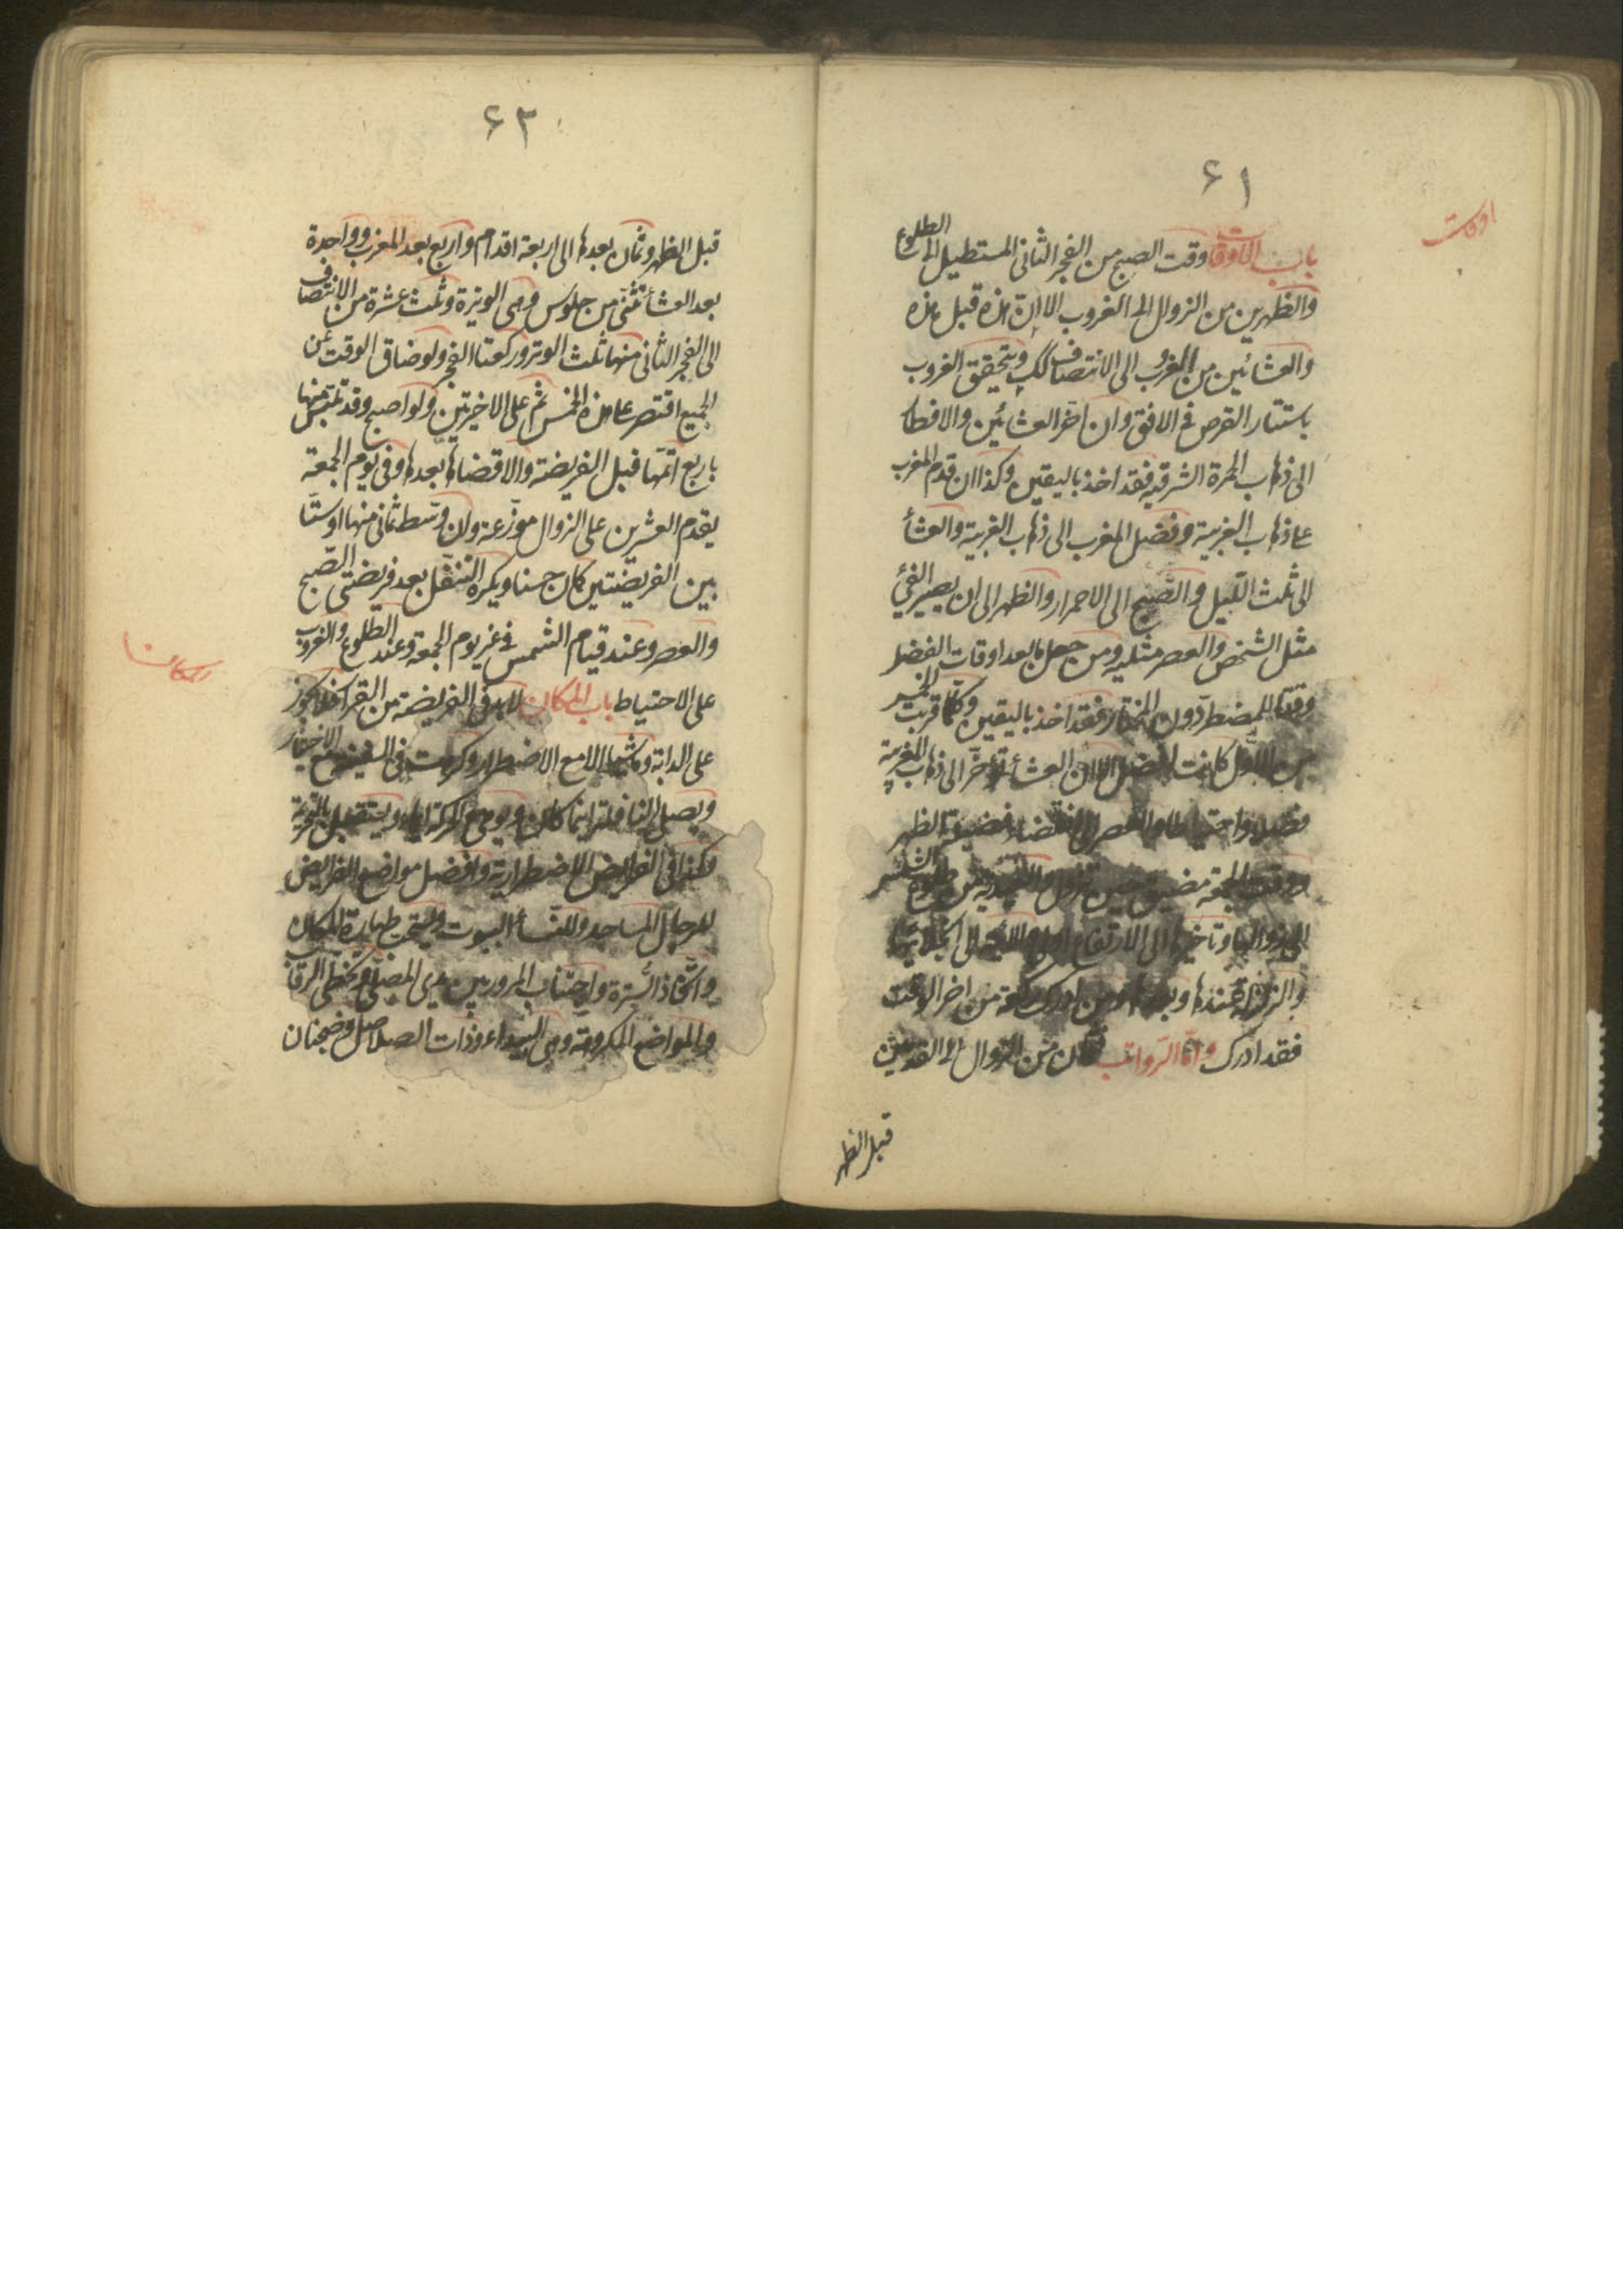 ۶۱
اوقات
باب الاوقات وقت الصبح من الفجر الثانى المستطيل الى الطلوع
والظهرين من الزوال الى الغروب الا ان هذه قبل هذه
والعشائين من الغروب الى الانتصاف كك ويتحقق الغروب
باستتار القرص فى الافق وان اخر العشائين والافطار
الى ذهاب الحمرة الشرقية فقد اخذ باليقين وكذا ان قدم المغرب
على ذهاب الغربية وفضيل المغرب الى ذهاب الغربية والعشأ
الى ثلث الليل والصبح الى الاحمرار والظهر الى ان يصير الفئ
مثل الشخص والعصر مثليه ومن جعل ما بعد اوقات الفضل
وقتا للمضطر دون المختار فقد اخذ باليقين وكلما قربت
من الاول كانت افضل الا ان العشأ تؤخر الى ذهاب المغربية
فضلا واحتياطا والعصر الى انقضاء فضيلة الظهر
ووقت الجمعة مضيق حين تزول الشمس
الى زوالها وتاخيرها الى الارتفاع
والزلزلة عندها وبعدها ومن ادرك ركعة من اخر الوقت
فقد ادرك واما الرواتب فثمان من الزوال الى القدمين
قبل الظهر
۶۲
قبل الظهر وثمان بعدها الى اربعة اقدام واربع بعد المغرب وواحدة
بعد العشأ تثنى من جلوس وهى الوتيرة وثلث عشرة من الانتصاف
الى الفجر الثانى منها ثلث الوتر وركعتا الفجر ولو ضاق الوقت عن
الجميع اقتصر على هذه الخمس ثم على الاخيرتين ولو اصبح وقد تلبس منها
باربع اتمها قبل الفريضة والا قضاها بعدها وفى يوم الجمعة
يقدم العشرين على الزوال موزعة ولو وسط ثمانى منها اوستا
بين الفريضتين كان حسنا ويكره التنفل بعد فريضتى الصبح
والعصر وعند قيام الشمس فى غير يوم الجمعة وعند الطلوع والغروب
على الاحتياط باب المكان لابد فى الفريضة من القرار فلا يجوز
على الدابة وماشيا الا مع الاضطرار وكرهت فى السفينة مع الاختيار
ويصلى النافلة اينما كان ويومى ويستقبل بالتحريمة
وكذا فى الفرايض الاضطرارية وافضل مواضع الفرايض
للرجال المساجد وللنسأ البيوت ويستحب طهارة المكان
واتخاذ السترة واجتناب المرور بين يدى المصلى وتخطى الرقاب
والمواضع المكروهة وهى البيداء وذات الصلاصل وضجنان